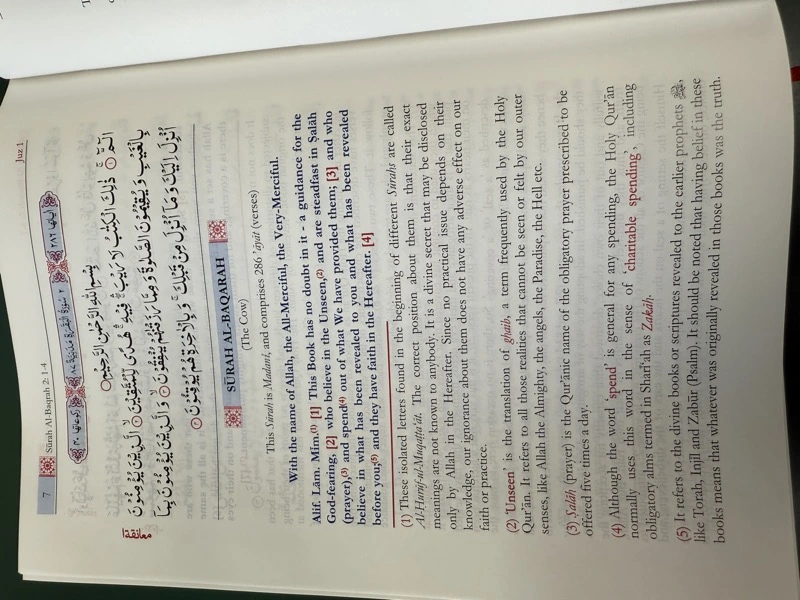 7
Sūrah Al-Baqrah 2: 1-4
Juz 1
بِسْمِ اللّٰهِ الرَّحْمٰنِ الرَّحِيْمِ
الٓمّٓ ۚ ١ ذٰلِكَ الْكِتٰبُ لَا رَيْبَ ۛ فِيْهِ ۛ هُدًى لِّلْمُتَّقِيْنَ ۙ ٢ الَّذِيْنَ يُؤْمِنُوْنَ
بِالْغَيْبِ وَ يُقِيْمُوْنَ الصَّلٰوةَ وَ مِمَّا رَزَقْنٰهُمْ يُنْفِقُوْنَ ۙ ٣ وَ الَّذِيْنَ يُؤْمِنُوْنَ بِمَاۤ
اُنْزِلَ اِلَيْكَ وَ مَاۤ اُنْزِلَ مِنْ قَبْلِكَ ۚ وَ بِالْاٰخِرَةِ هُمْ يُوْقِنُوْنَ ؕ ٤
معانقة ١
SŪRAH AL-BAQARAH
(The Cow)
This Sūrah is Madanī, and comprises 286 'āyāt (verses)
With the name of Allah, the All-Merciful, the Very-Merciful.
Alif. Lām. Mīm.(1) [1] This Book has no doubt in it - a guidance for the
God-fearing, [2] who believe in the Unseen,(2) and are steadfast in Ṣalāh
(prayer),(3) and spend(4) out of what We have provided them; [3] and who
believe in what has been revealed to you and what has been revealed
before you;(5) and they have faith in the Hereafter. [4]
(1) These isolated letters found in the beginning of different Sūrahs are called
Al-Ḥurūf-ul-Muqaṭṭa'āt. The correct position about them is that their exact
meanings are not known to anybody. It is a divine secret that may be disclosed
only by Allah in the Hereafter. Since no practical issue depends on their
knowledge, our ignorance about them does not have any adverse effect on our
faith or practice.
(2) 'Unseen' is the translation of ghaib, a term frequently used by the Holy
Qur'ān. It refers to all those realities that cannot be seen or felt by our outer
senses, like Allah the Almighty, the angels, the Paradise, the Hell etc.
(3) Ṣalāh (prayer) is the Qur'ānic name of the obligatory prayer prescribed to be
offered five times a day.
(4) Although the word 'spend' is general for any spending, the Holy Qur'ān
normally uses this word in the sense of 'charitable spending', including
obligatory alms termed in Sharī'ah as Zakāh.
(5) It refers to the divine books or scriptures revealed to the earlier prophets ﷺ,
like Torah, Injīl and Zabūr (Psalm). It should be noted that having belief in these
books means that whatever was originally revealed in those books was the truth.